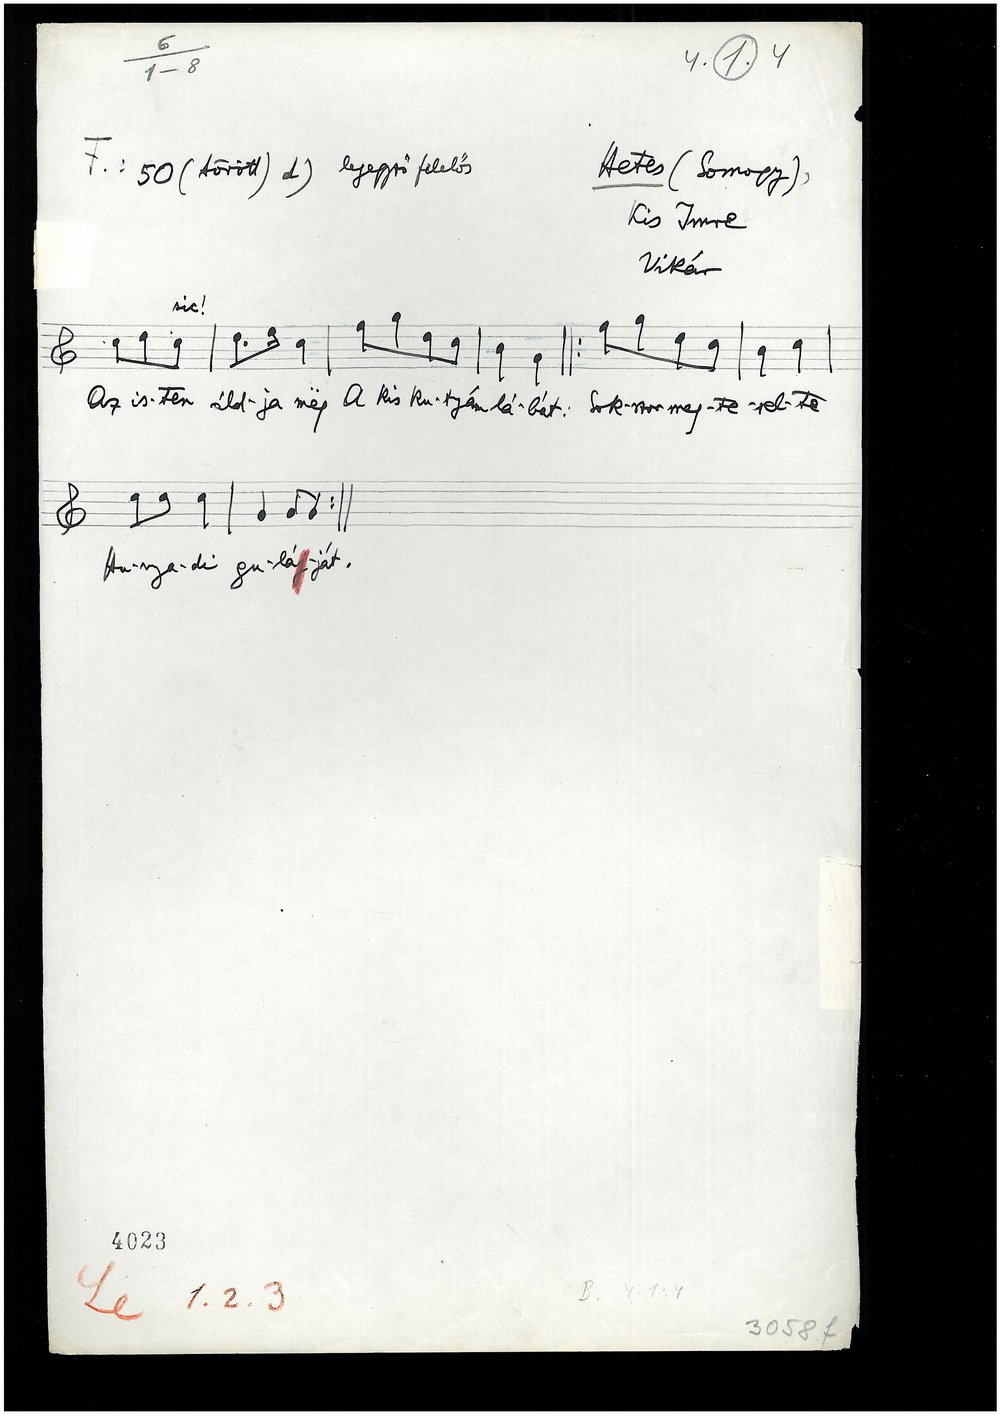 6
1–8
4. 1. 4
F.: 50 (törött) d) lejegyző felelős
Hetes (Somogy),
Kis Imre
Vikár
sic!
Az is-ten áld-ja mëg A kis ku-tyám lá-bát: Sok-szor meg-te-rel-te
Hu-nya-di gu-lá-ját.
4023
Le 1.2.3
B. 4.1.4
3058 f